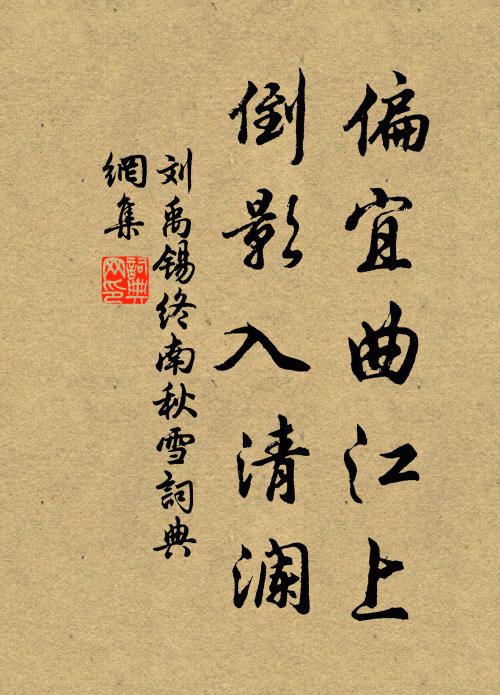 偏宜曲江上
倒影入清澜
刘禹锡终南秋雪詞典
網集
詞典
网印